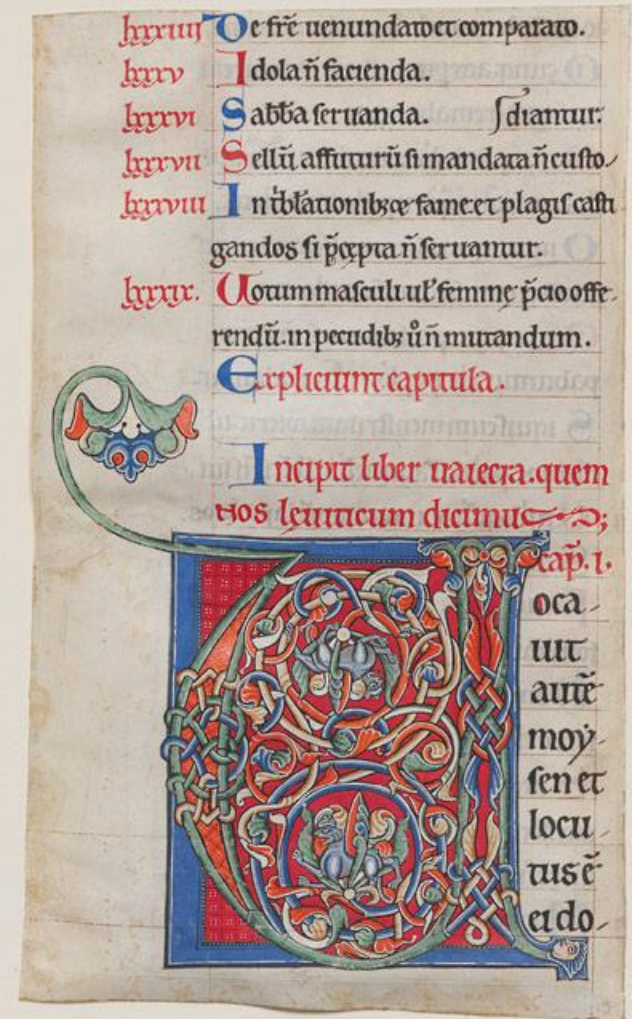 lxxxiiii De fr̄e uenundato et comparato.
lxxxv Idola n̄ facienda.
lxxxvi Sabb̄a seruanda. diantur.
lxxxvii Sellū affuturū si mandata n̄ custo-
lxxxviii In t̓blationibꝫ fame et plagis casti
gandos si p̄cepta n̄ seruantur.
lxxxix. Uotum masculi ul̄ feminę p̄cio offe-
rendū. in pecudibꝫ u̓ n̄ mutandum.
Expliciunt capitula.
Incipit liber uaiecra. quem
nos leuiticum dicimus;
cap̄. i.
Uoca-
uit
autē
moẏ-
sen et
locu-
tus ē
ei do-